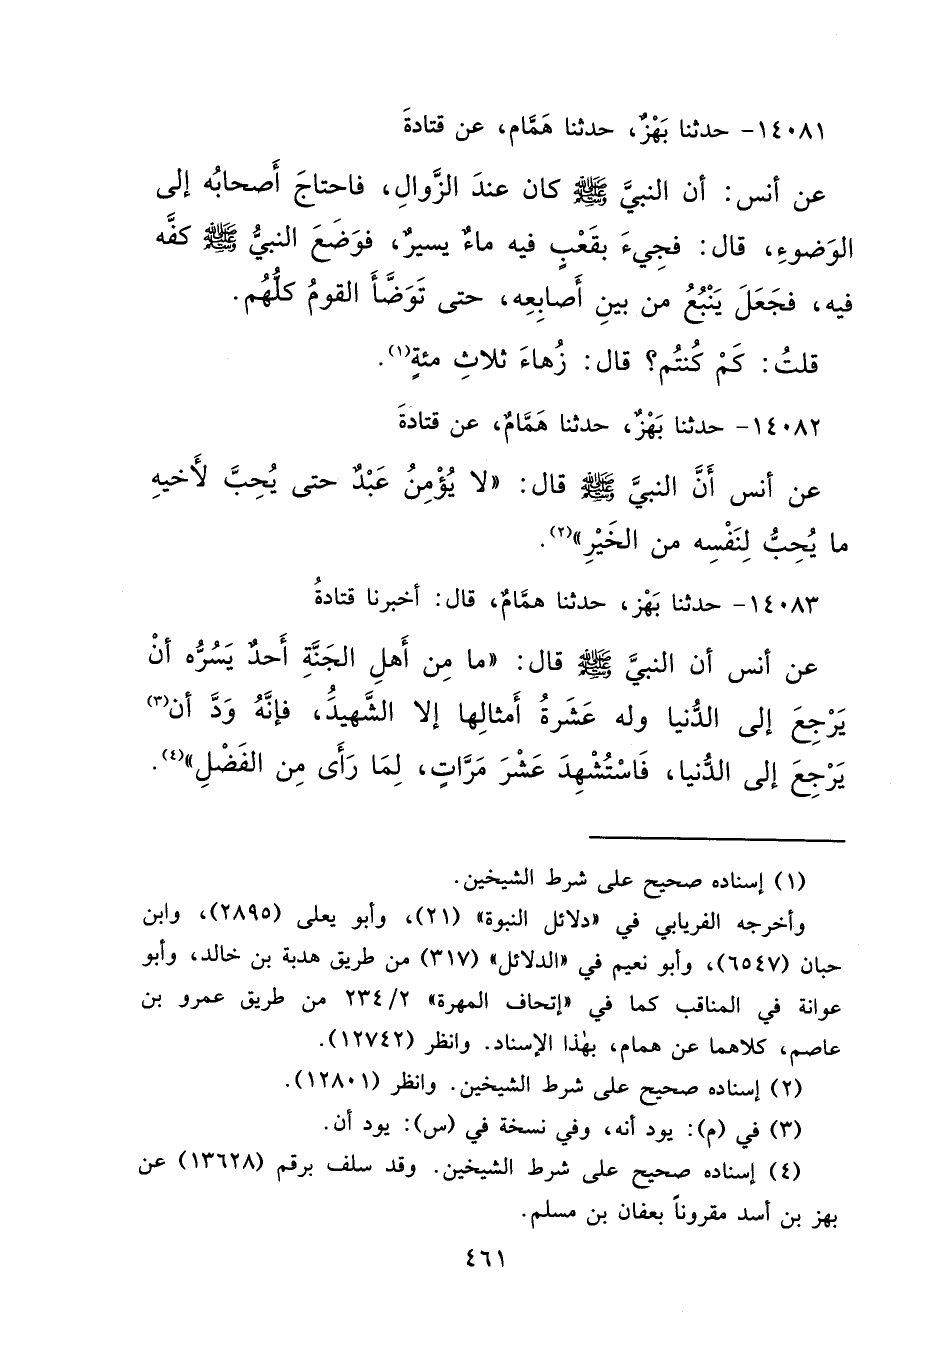 ١٤٠٨١- حدثنا بَهْزٌ، حدثنا هَمَّام، عن قتادةَ
عن أنس: أن النبيَّ ﷺ كان عندَ الزَّوالِ، فاحتاجَ أَصحابُه إلى
الوَضوءِ، قال: فجِيءَ بقَعْبٍ فيه ماءٌ يسيرٌ، فوَضَعَ النبيُّ ﷺ كفَّه
فيه، فجَعَلَ يَنْبُعُ من بينِ أَصابِعِه، حتى تَوَضَّأَ القومُ كلُّهُم.
قلتُ: كَمْ كُنتُم؟ قال: زُهاءَ ثلاثِ مئةٍ(١).
١٤٠٨٢- حدثنا بَهْزٌ، حدثنا هَمَّامٌ، عن قتادةَ
عن أنس أَنَّ النبيَّ ﷺ قال: «لا يُؤْمِنُ عَبْدٌ حتى يُحِبَّ لأَخيهِ
ما يُحِبُّ لِنَفْسِه من الخَيْرِ»(٢).
١٤٠٨٣- حدثنا بَهْز، حدثنا همَّامٌ، قال: أخبرنا قتادةُ
عن أنس أن النبيَّ ﷺ قال: «ما مِن أَهلِ الجَنَّةِ أَحدٌ يَسُرُّه أنْ
يَرْجِعَ إلى الدُّنيا وله عَشَرةُ أَمثالِها إلا الشَّهيدُ، فإنَّهُ وَدَّ أن(٣)
يَرْجِعَ إلى الدُّنيا، فَاسْتُشْهِدَ عَشْرَ مَرَّاتٍ، لِمَا رَأَى مِن الفَضْلِ»(٤).
(١) إسناده صحيح على شرط الشيخين.
وأخرجه الفريابي في «دلائل النبوة» (٢١)، وأبو يعلى (٢٨٩٥)، وابن
حبان (٦٥٤٧)، وأبو نعيم في «الدلائل» (٣١٧) من طريق هدبة بن خالد، وأبو
عوانة في المناقب كما في «إتحاف المهرة» ٢٣٤/٢ من طريق عمرو بن
عاصم، كلاهما عن همام، بهٰذا الإسناد. وانظر (١٢٧٤٢).
(٢) إسناده صحيح على شرط الشيخين. وانظر (١٢٨٠١).
(٣) في (م): يود أنه، وفي نسخة في (س): يود أن.
(٤) إسناده صحيح على شرط الشيخين. وقد سلف برقم (١٣٦٢٨) عن
بهز بن أسد مقروناً بعفان بن مسلم.
٤٦١